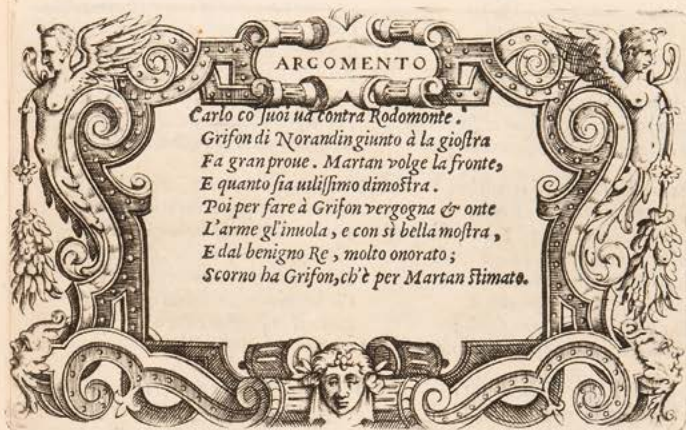 ARGOMENTO
Carlo co ſuoi ua contra Rodomonte.
Grifon di Norandin giunto à la gioſtra
Fa gran proue. Martan volge la fronte,
E quanto ſia uiliſſimo dimoſtra.
Poi per fare à Grifon vergogna & onte
L'arme gl'inuola, e con sì bella moſtra,
E dal benigno Re, molto onorato;
Scorno ha Grifon, ch'è per Martan ſtimato.